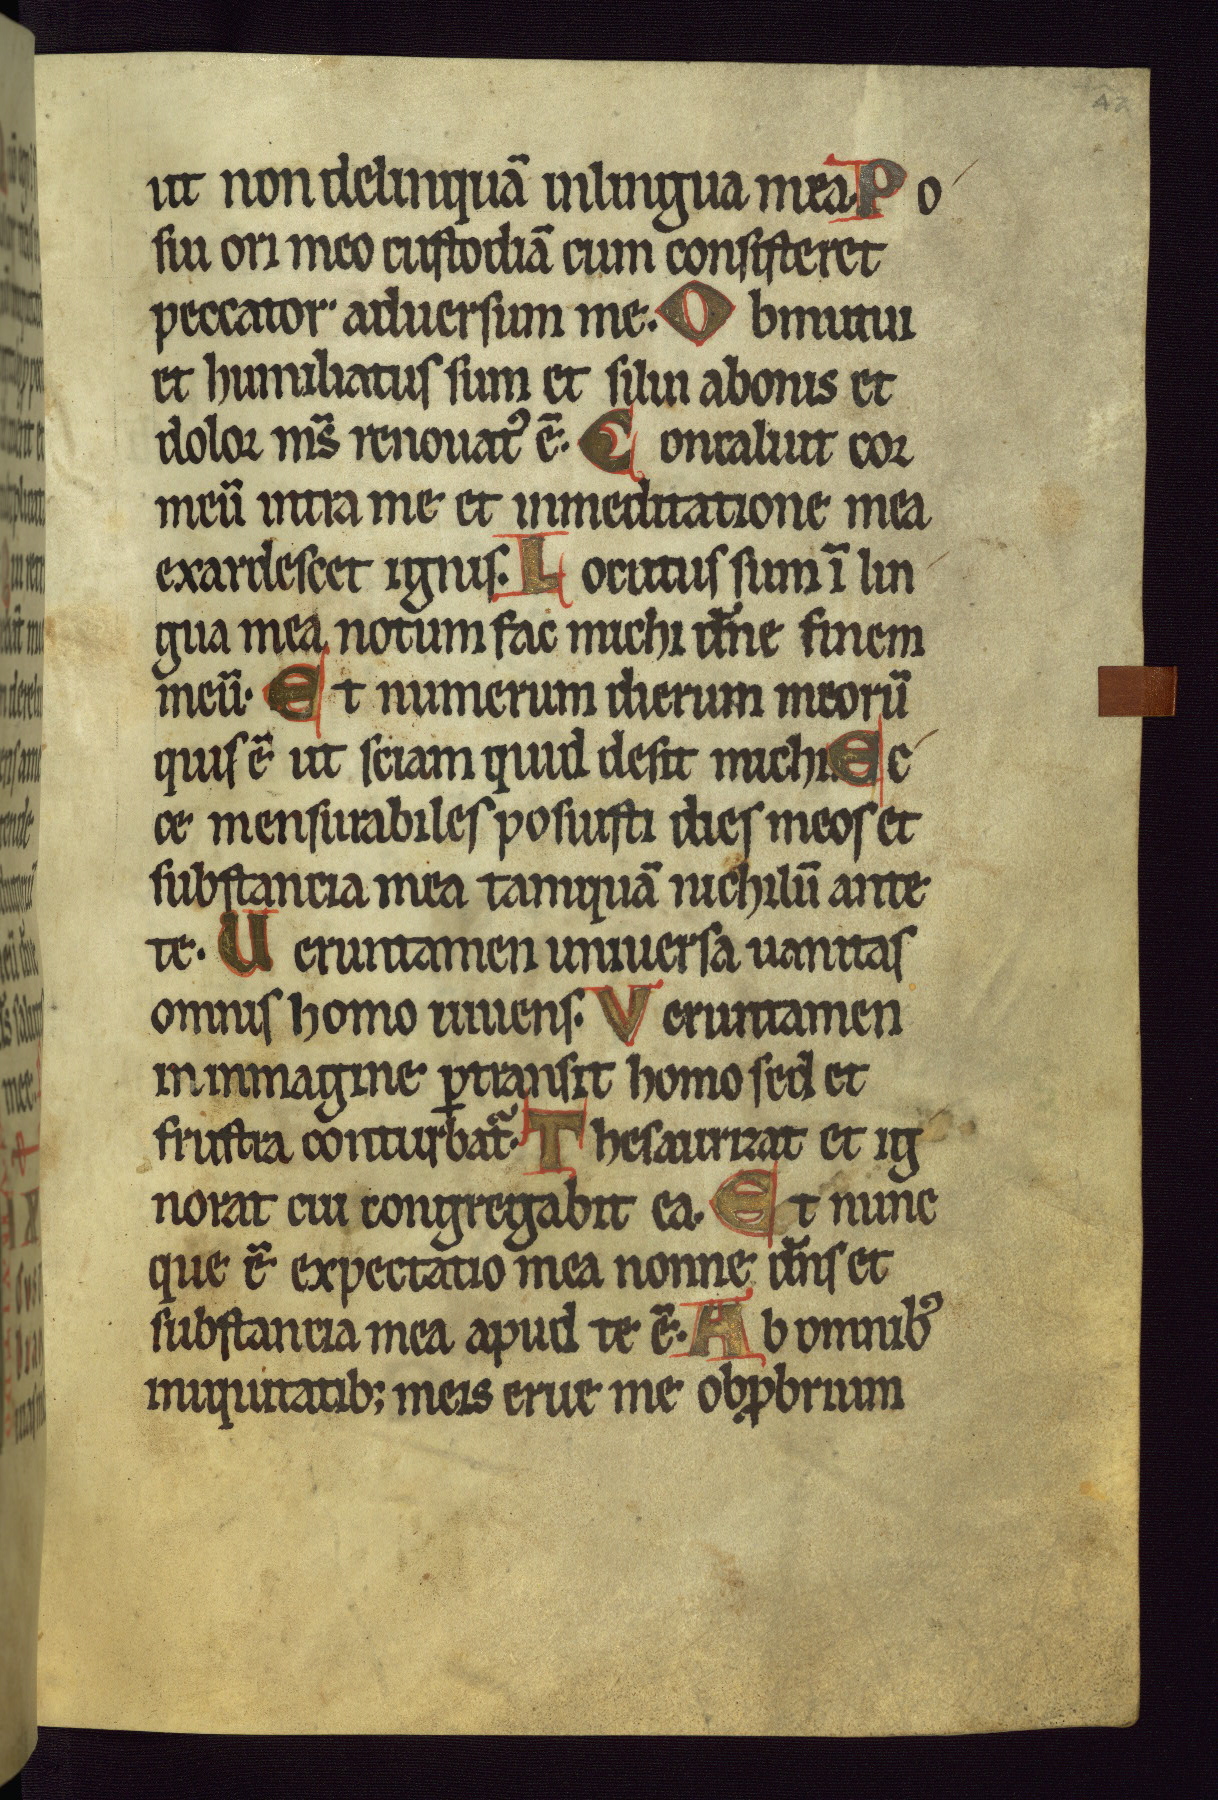 42
ut non delinquā inlingua mea. Po
sui ori meo custodiā cum consisteret
peccator aduersum me. Obmutui
et humiliatus sum et silui abonis et
dolor ms̄ renouatꝰ ē. Concaluit cor
meū intra me et inmeditatione mea
exardescet ignis. Locutus sum ī lin
gua mea notum fac michi dn̄e finem
meū. Et numerum dierum meorū
quis ē ut sciam quid desit michi. Ec
ce mensurabiles posuisti dies meos et
substancia mea tamquā nichilū ante
te. Ueruntamen uniuersa uanitas
omnis homo uiuens. Veruntamen
in immagine ꝑtransit homo sed et
frustra conturbat᷑. Thesaurizat et ig
norat cui congregabit ea. Et nunc
que ē expectatio mea nonne dn̄s et
substancia mea apud te ē. Ab omnibꝰ
iniquitatib; meis erue me obꝓbrium